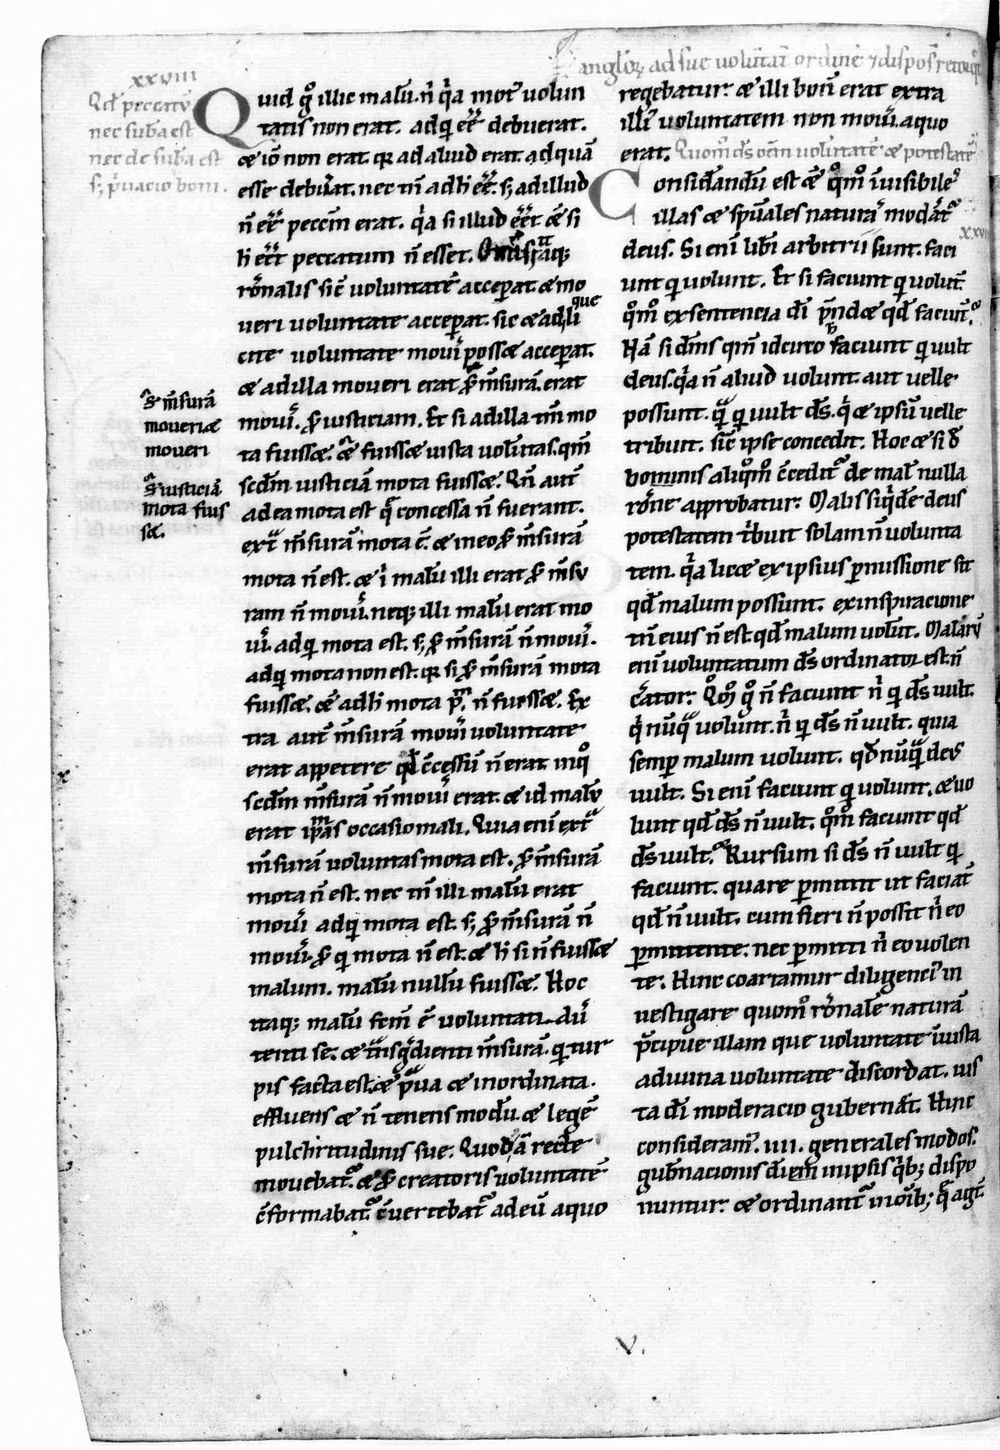 xxviii
Qd peccatū
nec sub̄a est
nec de sub̄a est
s; p̄uacio boni.
Quid g̊ illic malū. n̄ q̄a mot᷒ uolun
tatis non erat. adq̨ ēē debuerat.
⁊ iō non erat. q̨ ad aliud erat. ad quā
esse debuāt. nec tn̄ ad h̄ ēē. s; ad illud
n̄ ēē peccm̄ erat. q̄a si illud ēēt ⁊ si
h̄ ēēt peccatum n̄ esset.
rōnalis sic̄ uoluntatē acceꝑat. ⁊ mo
ueri uoluntate acceꝑat. sic ⁊ ad li
que
cite uoluntate moui posse acceꝑat.
⁊ ad illa moueri erat ꝓ m̄surā. erat
ꝓ m̄surā
moueri ⁊
moueri
moui. ꝓ iusticiam. Et si ad illa tm̄ mo
ta fuisset. ēēt fuisset iusta uolūtas. qm̄
scdm̄ iusticiā mota fuisset. Qn̄ aut̄
ꝓ iusticiā
mota fuis
set.
ad ea mota est q̄ concessa n̄ fuerant.
ext̄ m̄surā mota ē. ⁊ in eo ꝓ m̄surā
mota n̄ est. ⁊ ī malū illi erat ꝓ m̄su
ram n̄ moui. neq; illi malū erat mo
ui. adq̨ mota est. s; ꝓ m̄surā n̄ moui.
adq̨ mota non est. q̨ si ꝓ m̄surā mota
fuisset. ēēt ad h̄ mota n̄ fuisset. Ex
tra aut̄ m̄surā moui uoluntate
erat appetere qd̄ c̄cessū n̄ erat. in q̊
scdm̄ m̄surā n̄ moui erat. ⁊ id malū
erat occasio mali. Quia eni ext̄
m̄surā uoluntas mota est. ꝓ m̄surā
mota n̄ est. nec tn̄ illi malū erat
moui adq̨ mota est. s; ꝓ m̄surā n̄
moui. ꝓ q̨ mota n̄ est. ⁊ h̄ si n̄ fuisset
malum. malū nullū fuisset. Hoc
itaq; malū ē uoluntati
⁊ m̄surā. q̨ tur
pis facta est. ⁊ p̄ua ⁊ inordinata.
effluens ⁊ n̄ tenens modū. ⁊ legē
pulchritudinis sue. Quod ā recte
mouebat᷒. ⁊ ꝓ creatoris uoluntatē
c̄formabat᷒. c̄uertebat᷒ ad eū a quo
anglōꝝ ad sue uolūtat᷒ ordinē ⁊ disposīc̄
regebatur. ⁊ illi bonū erat extra
illi᷒ uoluntatem non moui. a quo
erat. Quom̄ ds̄ oēm uolūtatē ⁊ potestatē
Considandū est ⁊ q̊m̊ īuisibiles
illas ⁊ sp̄uales naturas modāt᷒
deus. Si enī lib̄i arbitrii sunt. faci
unt q̨ uolunt. Et si faciunt q̨ uolūt.
q̊m̊ ex sentencia dī pn̄det qd̄ faciūt.
Nā si dīns qm̄ idcirco faciunt q̨ uult
deus. q̄a n̄ aliud uolunt. aut uelle
possunt. q̨ q̨ uult ds̄. q̄ ⁊ ipsū uelle
tribuit. sic̄ ipse concedit. Hoc ⁊ si d̄
bonis aliq̊m̊ c̄cedit᷒ de mal̄ nulla
rōne approbatur. Malis siq̄dē deus
potestatem t̄buit solam n̄ uolunta
tem. q̄a licet ex ipsius ꝑmissione sit
qd̄ malum possunt. ex inspiracione
tn̄ eius n̄ est. qd̄ malum uolūt. Malaꝝ
eni uoluntatum ds̄ ordinator est. n̄
c̄ator. Q̊m̊ g̊ n̄ faciunt n̄ q̨ ds̄ uult.
q̄ nūq̄ uolunt. n̄ q̨ ds̄ n̄ uult. quia
semꝑ malum uolunt. qd̄ nūq̄ deus
uult. Si enī faciunt q̨ uolunt. ⁊ uo
lunt qd̄ ds̄ n̄ uult. q̊m̊ faciunt qd̄
ds̄ uult. Rursum si ds̄ n̄ uult q̨
faciunt. quare ꝑmittit ut faciāt
qd̄ n̄ uult. cum fieri n̄ possit n̄ eo
ꝑmittente. nec ꝑmitti n̄ eo uolen
te. Hinc coartamur diligenci᷒ in
uestigare quom̊ rōnalē naturā
p̄cipue illam que uoluntate īiusta
ad unā uoluntate discordat. ius
ta dī moderacio gubernat. Hinc
consideram᷒. iiii. generales modos.
gub̄nacionis diuine in ipsis q̄b; dispo
nuntur. ⁊ ordinant᷒ in oīb; q̄ agūt.
v.